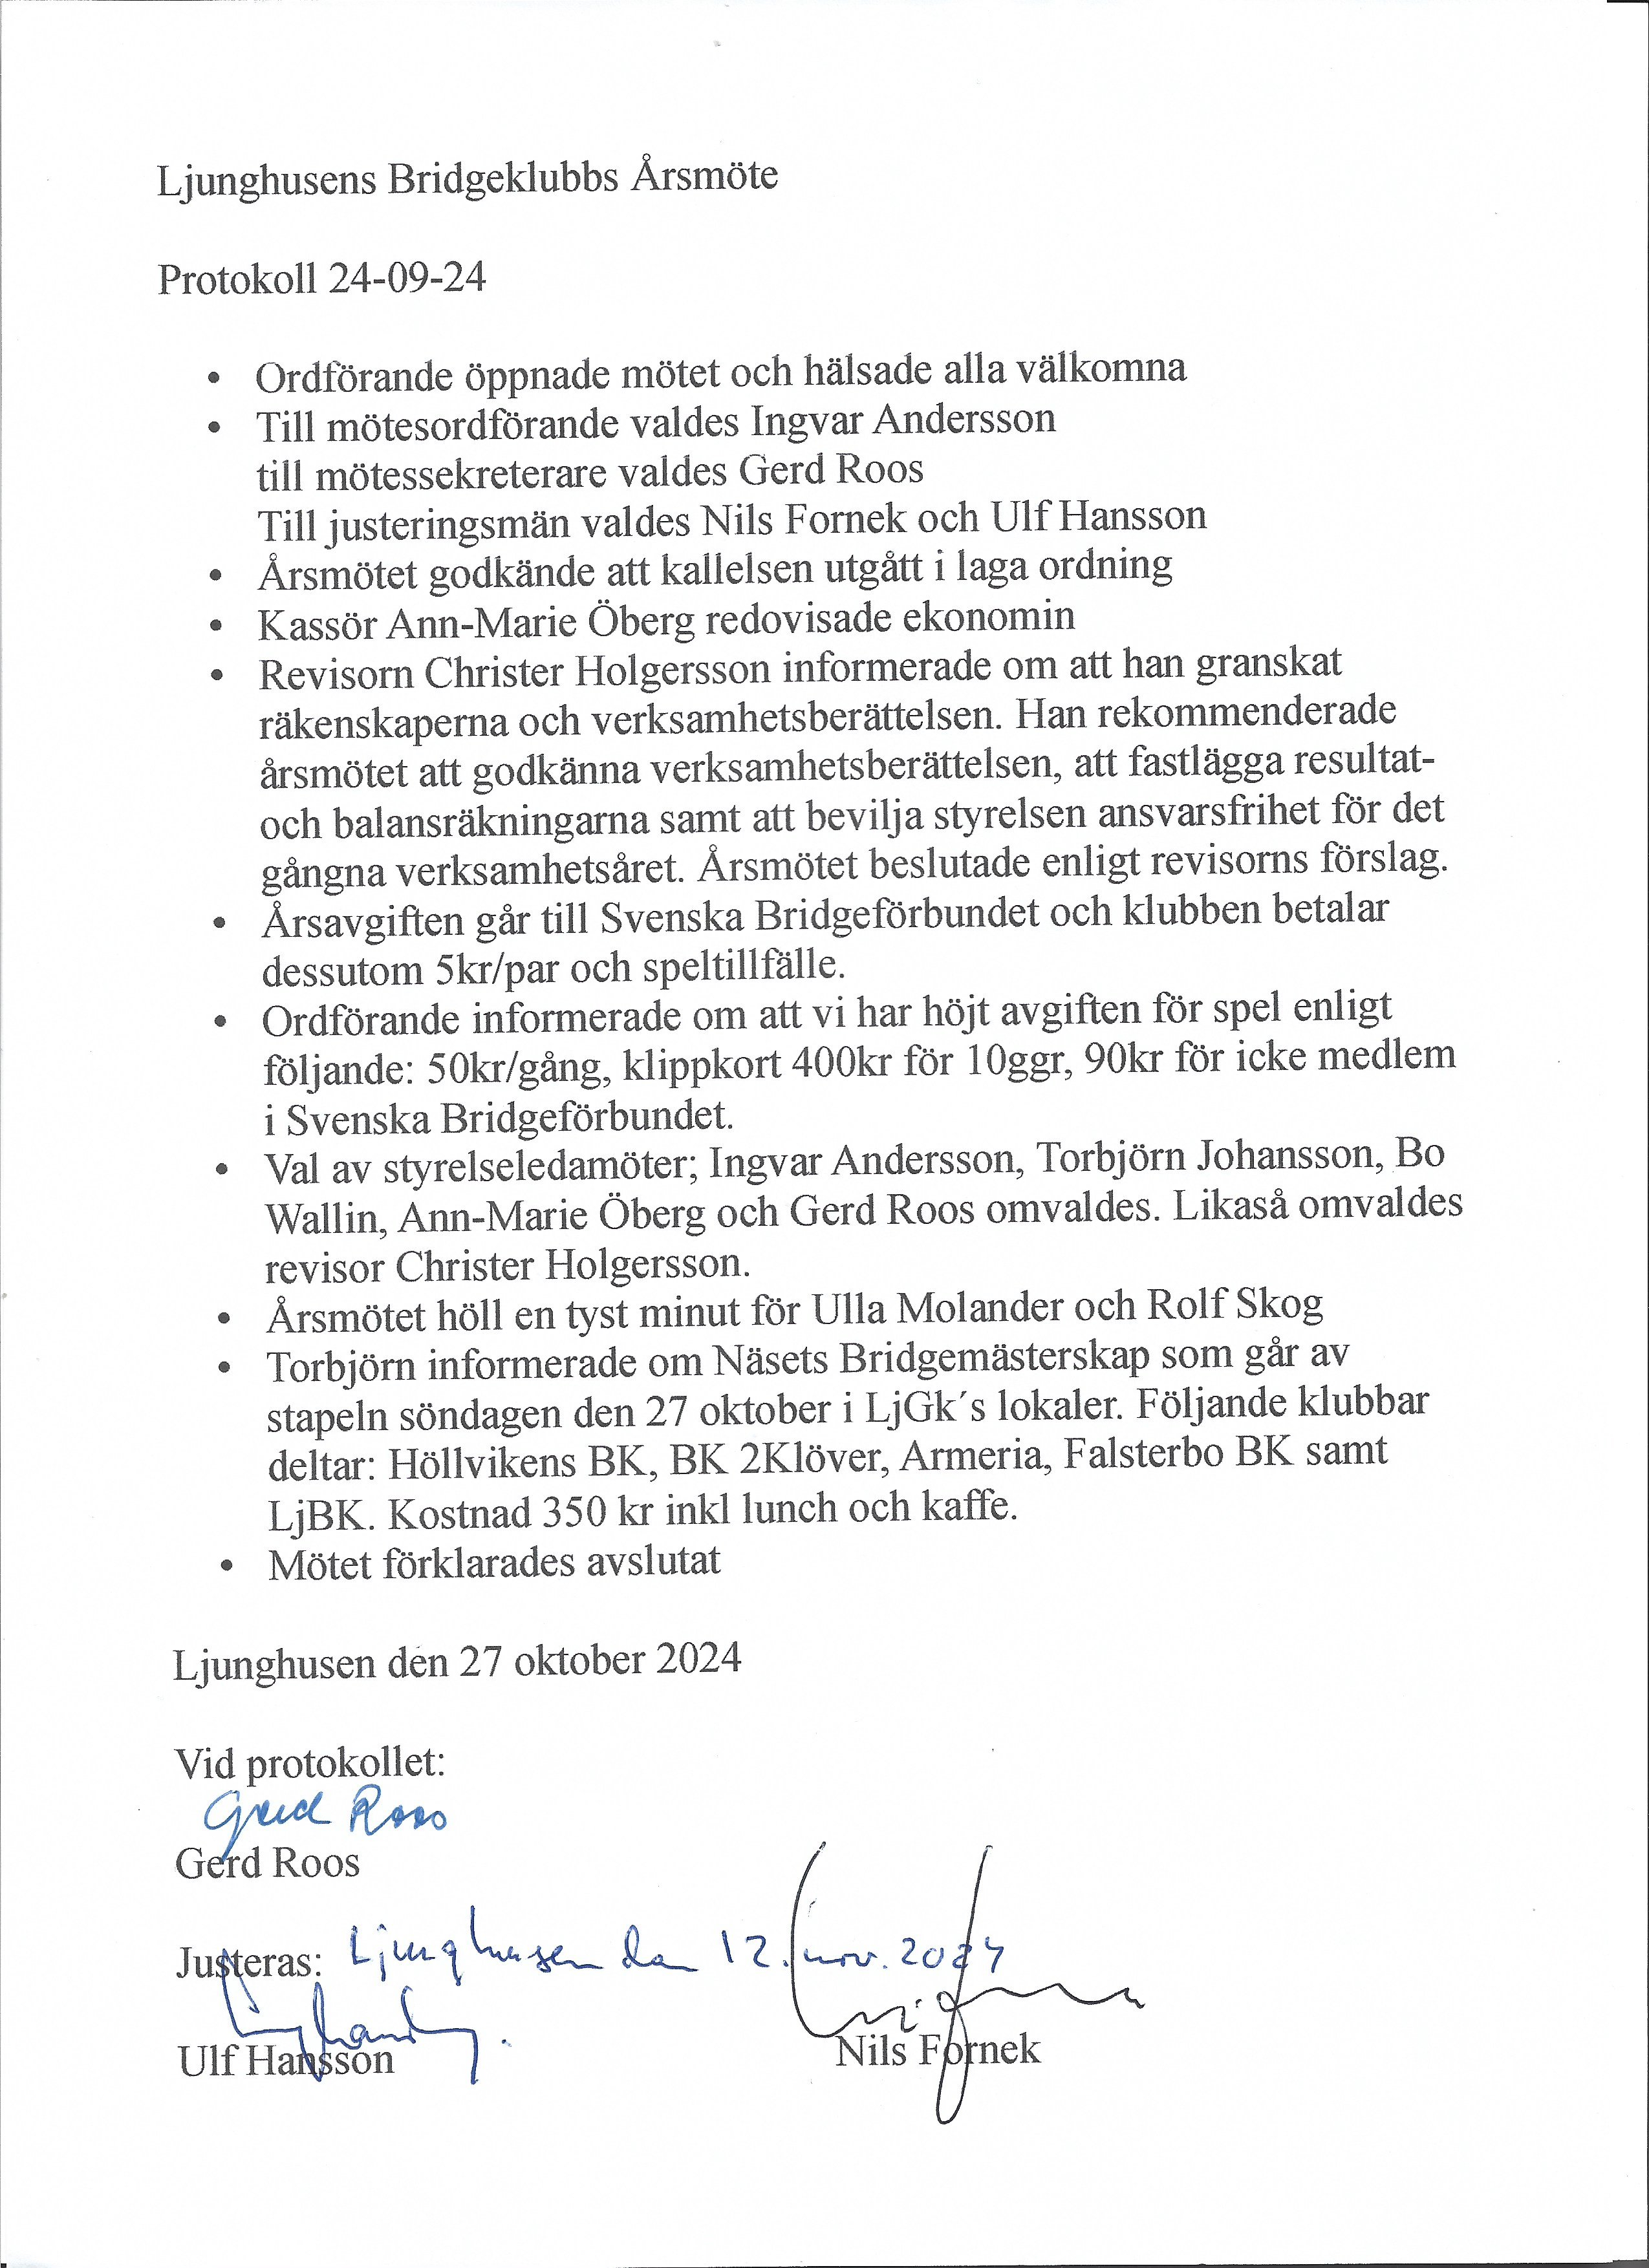 Ljunghusens Bridgeklubbs Årsmöte
Protokoll 24-09-24
• Ordförande öppnade mötet och hälsade alla välkomna
• Till mötesordförande valdes Ingvar Andersson
till mötessekreterare valdes Gerd Roos
Till justeringsmän valdes Nils Fornek och Ulf Hansson
• Årsmötet godkände att kallelsen utgått i laga ordning
• Kassör Ann-Marie Öberg redovisade ekonomin
• Revisorn Christer Holgersson informerade om att han granskat
räkenskaperna och verksamhetsberättelsen. Han rekommenderade
årsmötet att godkänna verksamhetsberättelsen, att fastlägga resultat-
och balansräkningarna samt att bevilja styrelsen ansvarsfrihet för det
gångna verksamhetsåret. Årsmötet beslutade enligt revisorns förslag.
• Årsavgiften går till Svenska Bridgeförbundet och klubben betalar
dessutom 5kr/par och speltillfälle.
• Ordförande informerade om att vi har höjt avgiften för spel enligt
följande: 50kr/gång, klippkort 400kr för 10ggr, 90kr för icke medlem
i Svenska Bridgeförbundet.
• Val av styrelseledamöter; Ingvar Andersson, Torbjörn Johansson, Bo
Wallin, Ann-Marie Öberg och Gerd Roos omvaldes. Likaså omvaldes
revisor Christer Holgersson.
• Årsmötet höll en tyst minut för Ulla Molander och Rolf Skog
• Torbjörn informerade om Näsets Bridgemästerskap som går av
stapeln söndagen den 27 oktober i LjGk´s lokaler. Följande klubbar
deltar: Höllvikens BK, BK 2Klöver, Armeria, Falsterbo BK samt
LjBK. Kostnad 350 kr inkl lunch och kaffe.
• Mötet förklarades avslutat
Ljunghusen den 27 oktober 2024
Vid protokollet:
Gerd Roos
Gerd Roos
Justeras: Ljunghusen den 12. nov. 2024
Ulf Hansson Nils Fornek